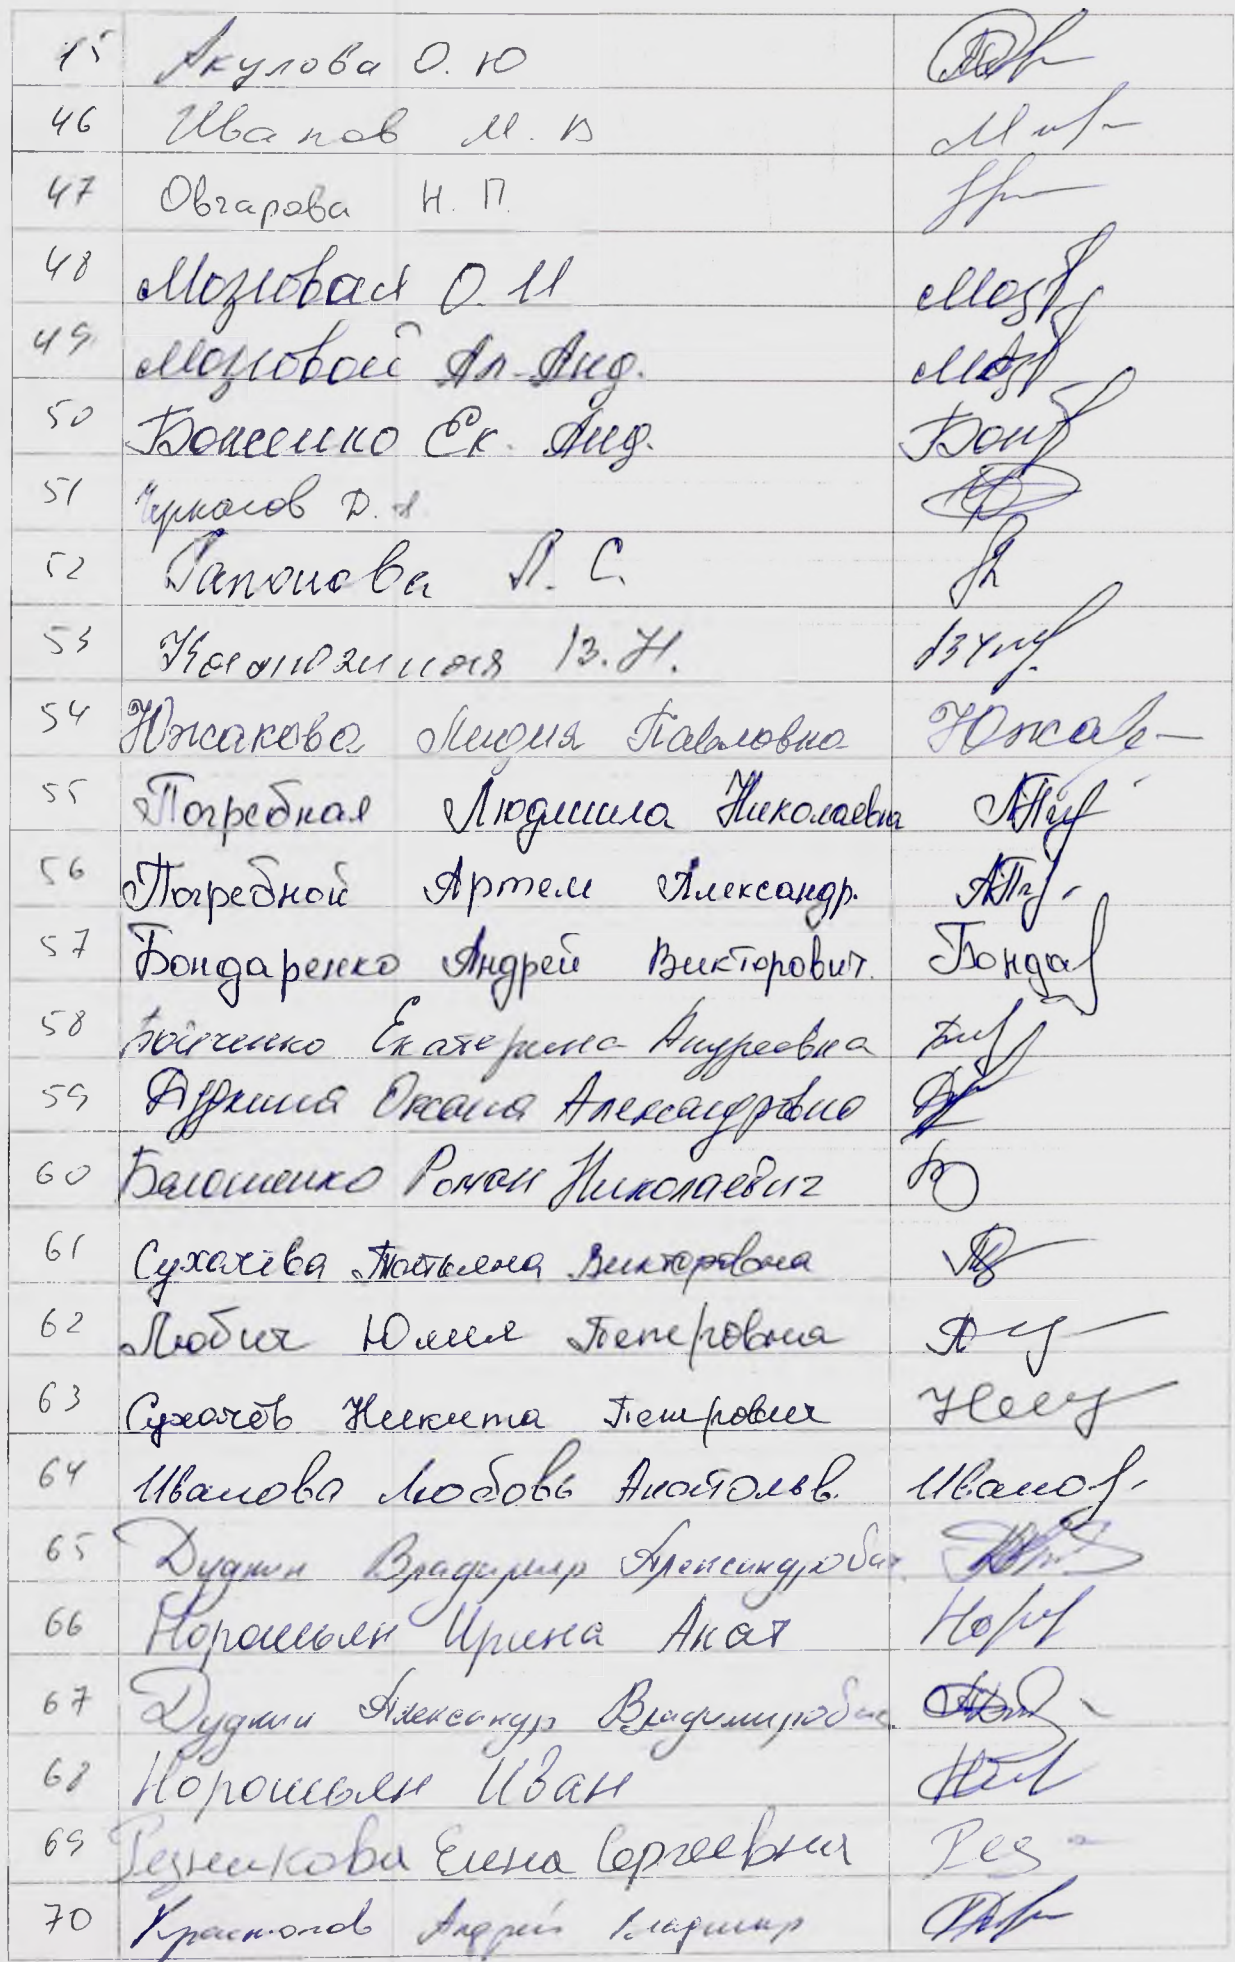 45 Акулова О. Ю
46 Иванов М. В
47 Овчарова Н. П.
48 Мозговая О. И
49 Мозговой Ал. Анд.
50 Боженко Ек. Анд.
51 Д.
52 Гапонова Л. С.
53 В. Н.
54 Южакова Лидия Павловна Южа
55 Погребная Людмила Николаевна
56 Погребной Артем Александр.
57 Бондаренко Андрей Викторович. Бонда
58 Бойченко Екатерина Андреевна
59 Дудкина Оксана Александровна
60 Белошенко Роман Николаевич
61 Сухачёва Татьяна Викторовна
62 Любич Юлия Петровна
63 Сухачёв Никита Петрович
64 Иванова Любовь Анатольв. Иванов
65 Дудкин Владимир Александрович
66 Норошьян Ирина Анат
67 Дудкин Александр Владимирович
68 Норошьян Иван
69 Резникова Елена Сергеевна Рез
70 Андрей Владимир